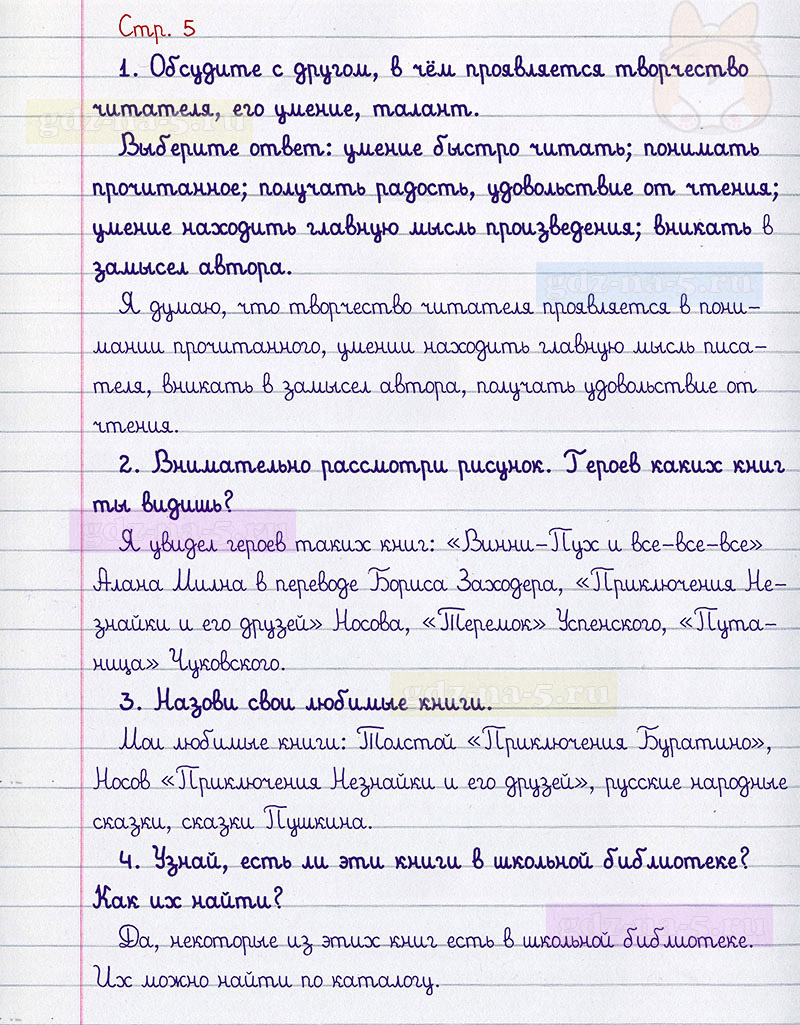 Стр. 5
1. Обсудите с другом, в чём проявляется творчество
читателя, его умение, талант.
gdz-na-5.ru
Выберите ответ: умение быстро читать; понимать
прочитанное; получать радость, удовольствие от чтения;
умение находить главную мысль произведения; вникать в
замысел автора.
gdz-na-5.ru
Я думаю, что творчество читателя проявляется в пони-
мании прочитанного, умении находить главную мысль писа-
теля, вникать в замысел автора, получать удовольствие от
чтения.
2. Внимательно рассмотри рисунок. Героев каких книг
ты видишь?
gdz-na-5.ru
Я увидел героев таких книг: «Винни-Пух и все-все-все»
Алана Милна в переводе Бориса Заходера, «Приключения Не-
знайки и его друзей» Носова, «Теремок» Успенского, «Пута-
ница» Чуковского.
gdz-na-5.ru
3. Назови свои любимые книги.
Мои любимые книги: Толстой «Приключения Буратино»,
Носов «Приключения Незнайки и его друзей», русские народные
сказки, сказки Пушкина.
4. Узнай, есть ли эти книги в школьной библиотеке?
Как их найти?
gdz-na-5.ru
Да, некоторые из этих книг есть в школьной библиотеке.
Их можно найти по каталогу.